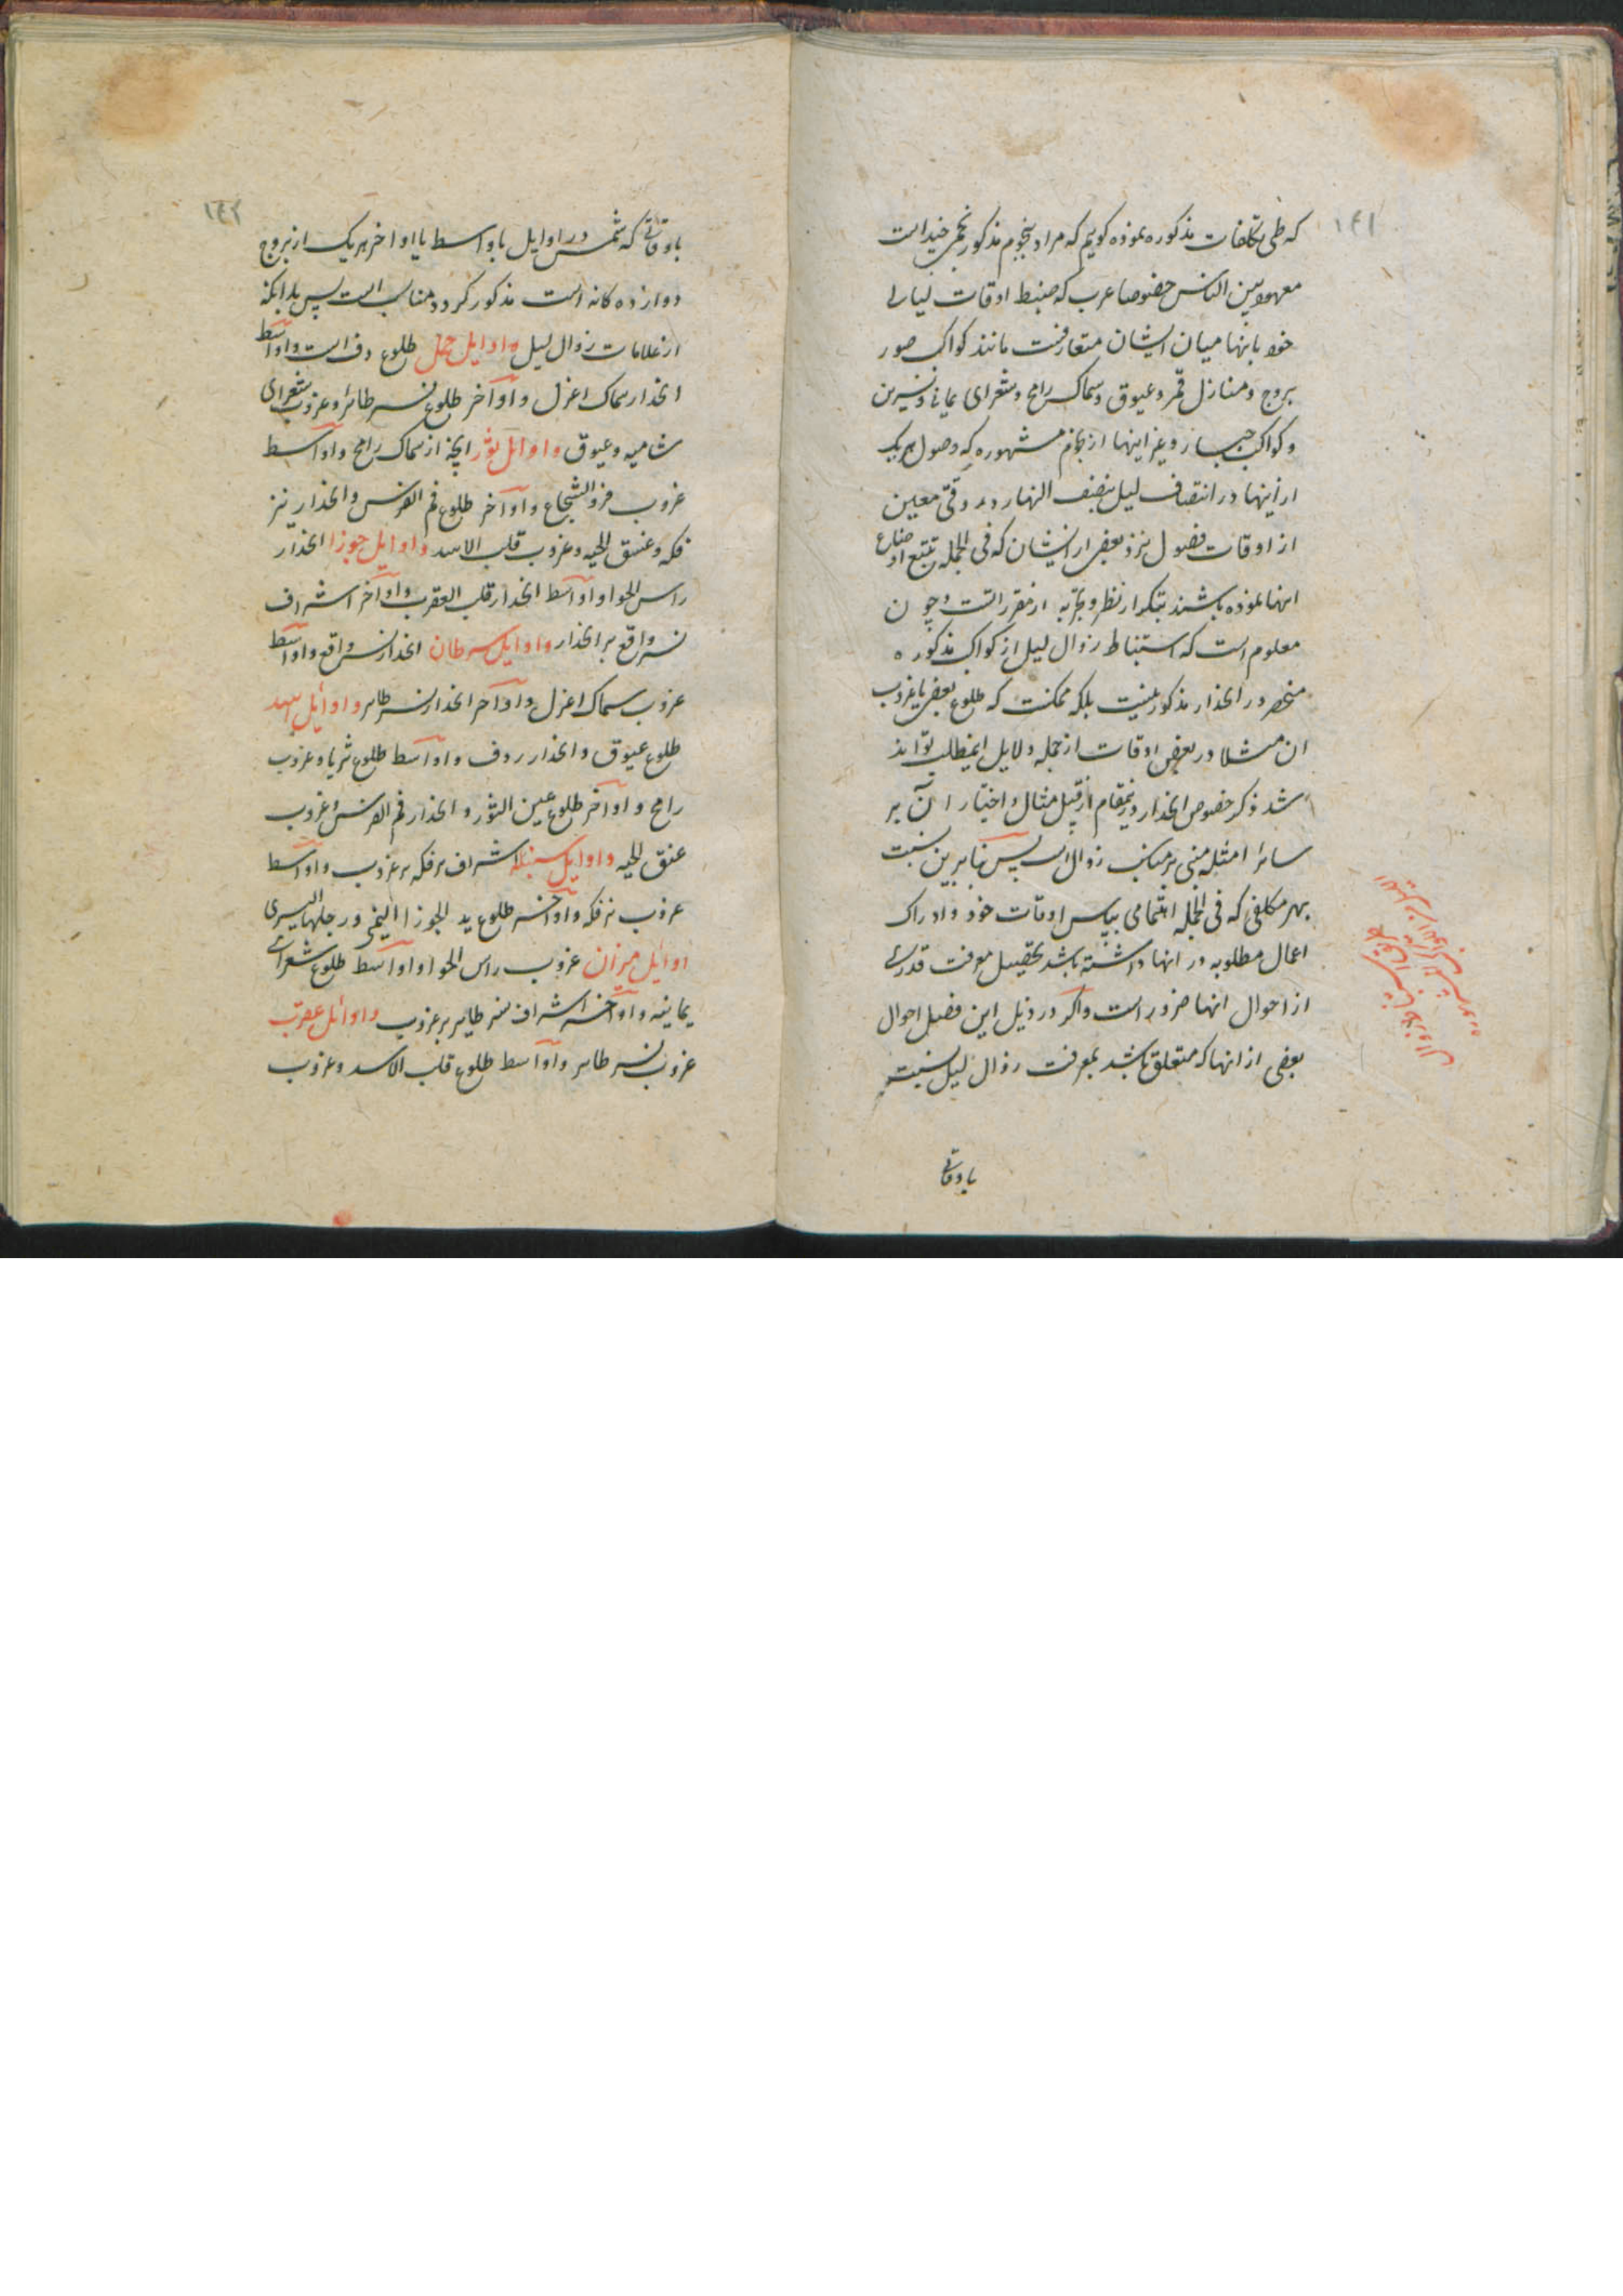 ۱۴۱
که طی تکلفات مذکوره نموده کویم که مراد بنجوم مذکور نجمی چند است
معهود بین الناس خصوصا عرب که ضبط اوقات لیالی
خود بانها میان ایشان متعارفست مانند کواکب صور
بروج و منازل قمر و عیوق و سماک رامح و شعرای یمانی و نسرین
و کواکب جبار و غیر اینها از نجوم مشهوره که وصول هر یک
از اینها در انتصاف لیل بنصف النهار در وقتی معین
از اوقات فصول نزد بعضی از ایشان که فی الجمله تتبع اوضاع
انها نموده باشند بتکرار نظر و تجربه از مقرراتست و چون
معلوم است که استنباط زوال لیل از کواکب مذکوره
منحصر در انحدار مذکور نیست بلکه ممکنست که طلوع بعضی یا غروب
ان مثلا در بعضی اوقات از جمله دلایل اینمطلب تواند
شد ذکر خصوص انحدار درینمقام از قبیل مثال و اختیار آن بر
سائر امثله مبنی بر مناسبت زوال است پس بنابرین نسبت
بهر مکلفی که فی الجمله اهتمامی بپاس اوقات خود و ادراک
اعمال مطلوبه در انها داشته باشد تحصیل معرفت قدری
از احوال انها ضرور است و اکر در ذیل این فصل احوال
بعضی از انها که متعلق باشد بمعرفت زوال لیل نسبت
باوقاتی
۱۴۲
باوقاتی که شمس در اوایل یا واسط یا اواخر هر یک از بروج
دوازده کانه است مذکور کردد مناسب است پس بدانکه
از علامات زوال لیل در اوایل حمل طلوع ردف است و اواسط
انحدار سماک اعزل و اواخر طلوع نسر طائر و غروب شعرای
شامیه و عیوق و اوایل ثور انچه از سماک رامح و اواسط
غروب فرد الشجاع و اواخر طلوع فم الفرس و انحدار نیر
فکه و عنق الحیه و غروب قلب الاسد و اوایل جوزا انحدار
راس الحوا و اواسط انحدار قلب العقرب و اواخر اشراف
نسر واقع بر انحدار و اوایل سرطان انحدار نسر واقع و اواسط
غروب سماک اعزل و اواخر انحدار نسر طایر و اوایل اسد
طلوع عیوق و انحدار ردف و اواسط طلوع ثریا و غروب
رامح و اواخر طلوع عین الثور و انحدار فم الفرس و غروب
عنق الحیه و اوایل سنبله اشراف نیر فکه بر غروب و اواسط
غروب نیر فکه و اواخر طلوع ید الجوزا الیمنی و رجلها الیسری
اوایل میزان غروب راس الحوا و اواسط طلوع شعرای
یمانیه و اواخر اشراف نسر طایر بر غروب و اوائل عقرب
غروب نسر طایر و اواسط طلوع قلب الاسد و غروب